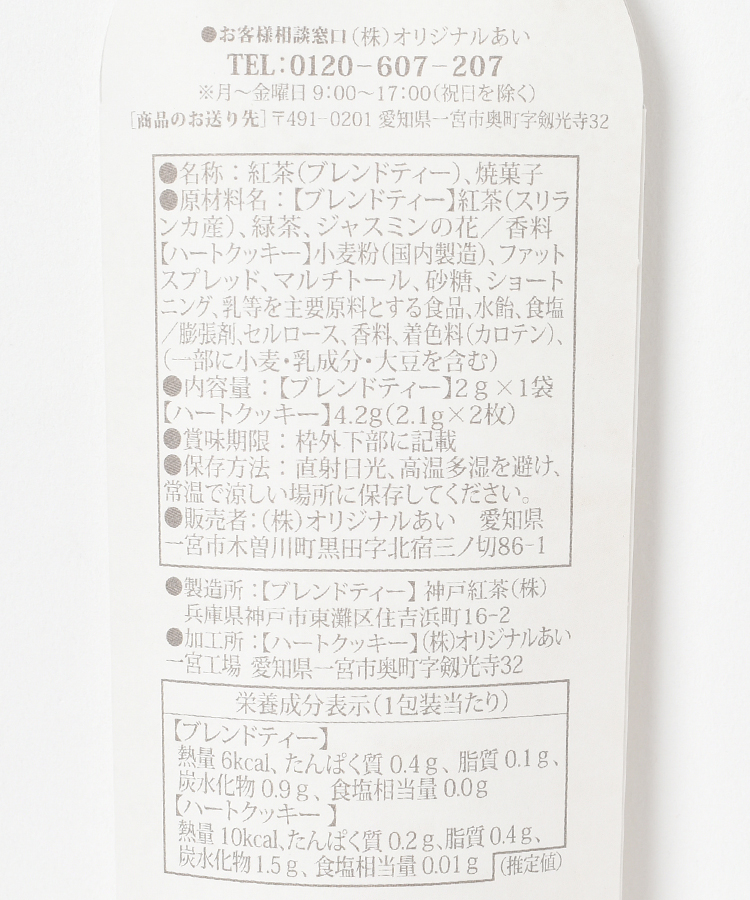 ●お客様相談窓口(株)オリジナルあい
TEL:0120-607-207
※月〜金曜日 9:00〜17:00(祝日を除く)
[商品のお送り先]〒491-0201 愛知県一宮市奥町字剱光寺32
●名称：紅茶(ブレンドティー)、焼菓子
●原材料名：【ブレンドティー】紅茶(スリラ
ンカ産)、緑茶、ジャスミンの花／香料
【ハートクッキー】小麦粉(国内製造)、ファット
スプレッド、マルチトール、砂糖、ショート
ニング、乳等を主要原料とする食品、水飴、食塩
／膨張剤、セルロース、香料、着色料(カロテン)、
(一部に小麦・乳成分・大豆を含む)
●内容量：【ブレンドティー】2ｇ×1袋
【ハートクッキー】4.2g(2.1g×2枚)
●賞味期限：枠外下部に記載
●保存方法：直射日光、高温多湿を避け、
常温で涼しい場所に保存してください。
●販売者：(株)オリジナルあい　愛知県
一宮市木曽川町黒田字北宿三ノ切86-1
●製造所：【ブレンドティー】神戸紅茶(株)
兵庫県神戸市東灘区住吉浜町16-2
●加工所：【ハートクッキー】(株)オリジナルあい
一宮工場 愛知県一宮市奥町字剱光寺32
栄養成分表示(1包装当たり)
【ブレンドティー】
熱量 6kcal、たんぱく質 0.4ｇ、脂質 0.1ｇ、
炭水化物 0.9ｇ、食塩相当量 0.0g
【ハートクッキー】
熱量 10kcal、たんぱく質 0.2ｇ、脂質 0.4ｇ、
炭水化物 1.5ｇ、食塩相当量 0.01ｇ (推定値)